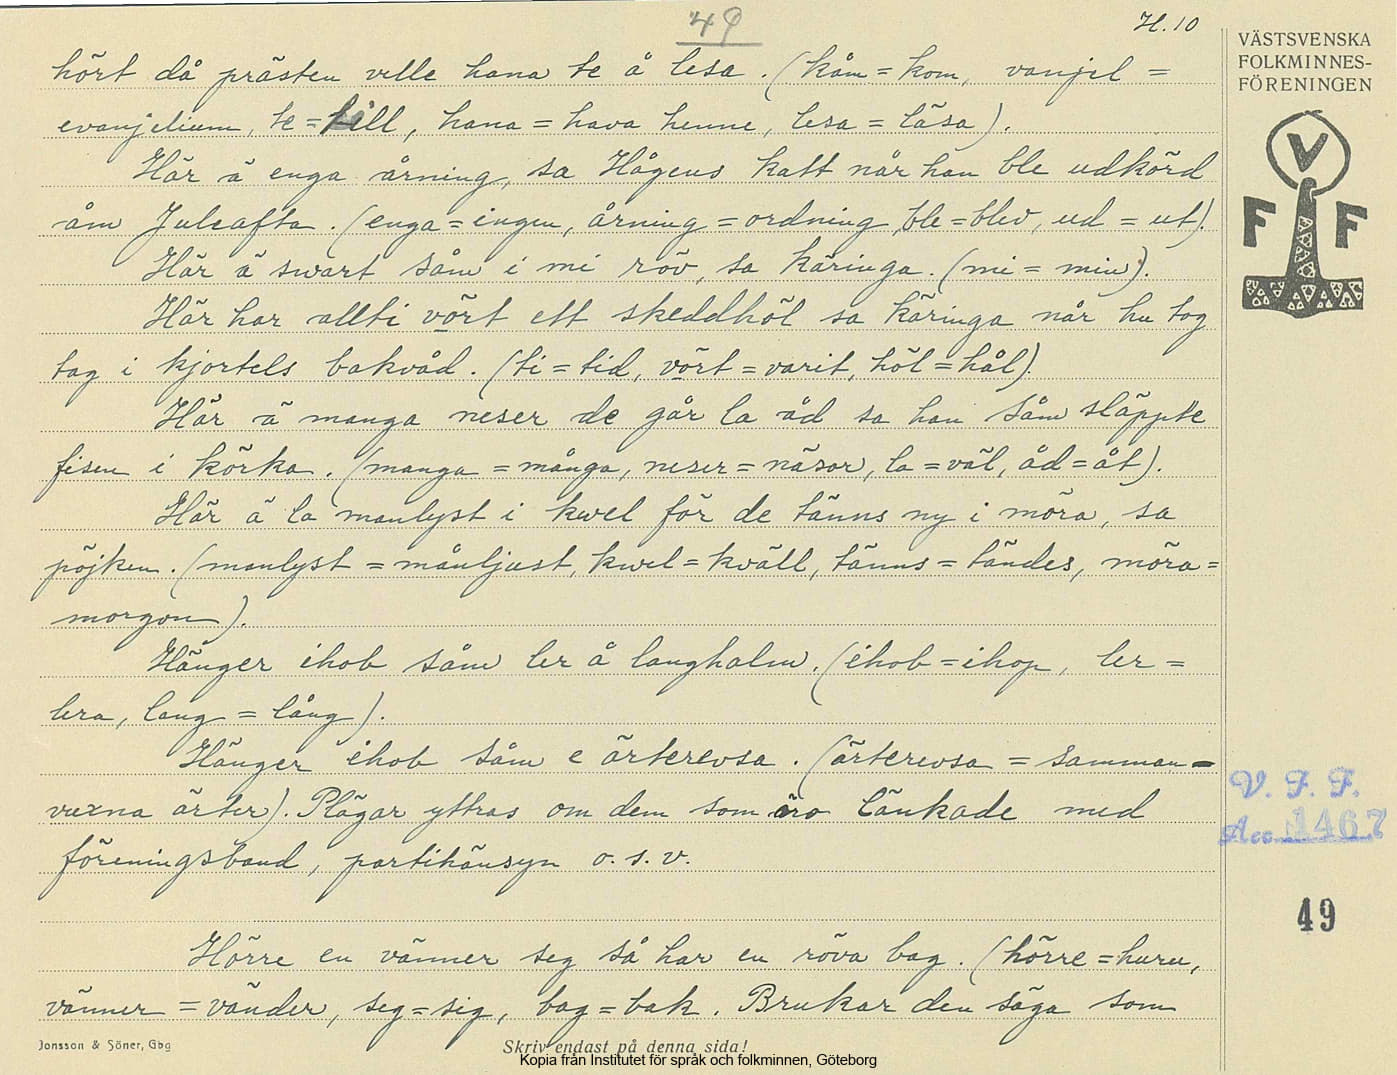 49
H. 10
VÄSTSVENSKA
FOLKMINNES-
FÖRENINGEN
V
F F
hört då prästen velle hana te å lesa. (kåm = kom, vanjel =
evanjelium, te = till, hana = hava henne, lesa = läsa).
Här ä enga årning, sa Hågens katt når han ble udkörd
åm Juleafta. (enga = ingen, årning = ordning, ble = blev, ud = ut).
Här ä swart såm i mi röv, sa käringa. (mi = min).
Här har allti vört ett skeddhöl sa käringa når hu tog
tag i kjortels bakvåd. (ti = tid, vört = varit, höl = hål).
Här ä manga neser de går la åd sa han såm släppte
fisen i körka. (manga = många, neser = näsor, la = väl, åd = åt).
Här ä la manlyst i kwel för de tänns ny i möra, sa
pöjken. (manlyst = månljust, kwel = kväll, tänns = tändes, möra =
morgon).
Hänger ihob såm ler å langhalm. (ihob = ihop, ler =
lera, lang = lång).
Hänger ihob såm e ärterevsa. (ärterevsa = samman-
vuxna ärter). Plägar yttras om dem som äro länkade med
föreningsband, partihänsyn o.s.v.
Hörre en vänner seg så har en röva bag. (hörre = huru,
vänner = vänder, seg = sig, bag = bak. Brukar den säga som
V. F. F.
Acc. 1467
49
Jonsson & Söner, Gbg
Skriv endast på denna sida!
Kopia från Institutet för språk och folkminnen, Göteborg